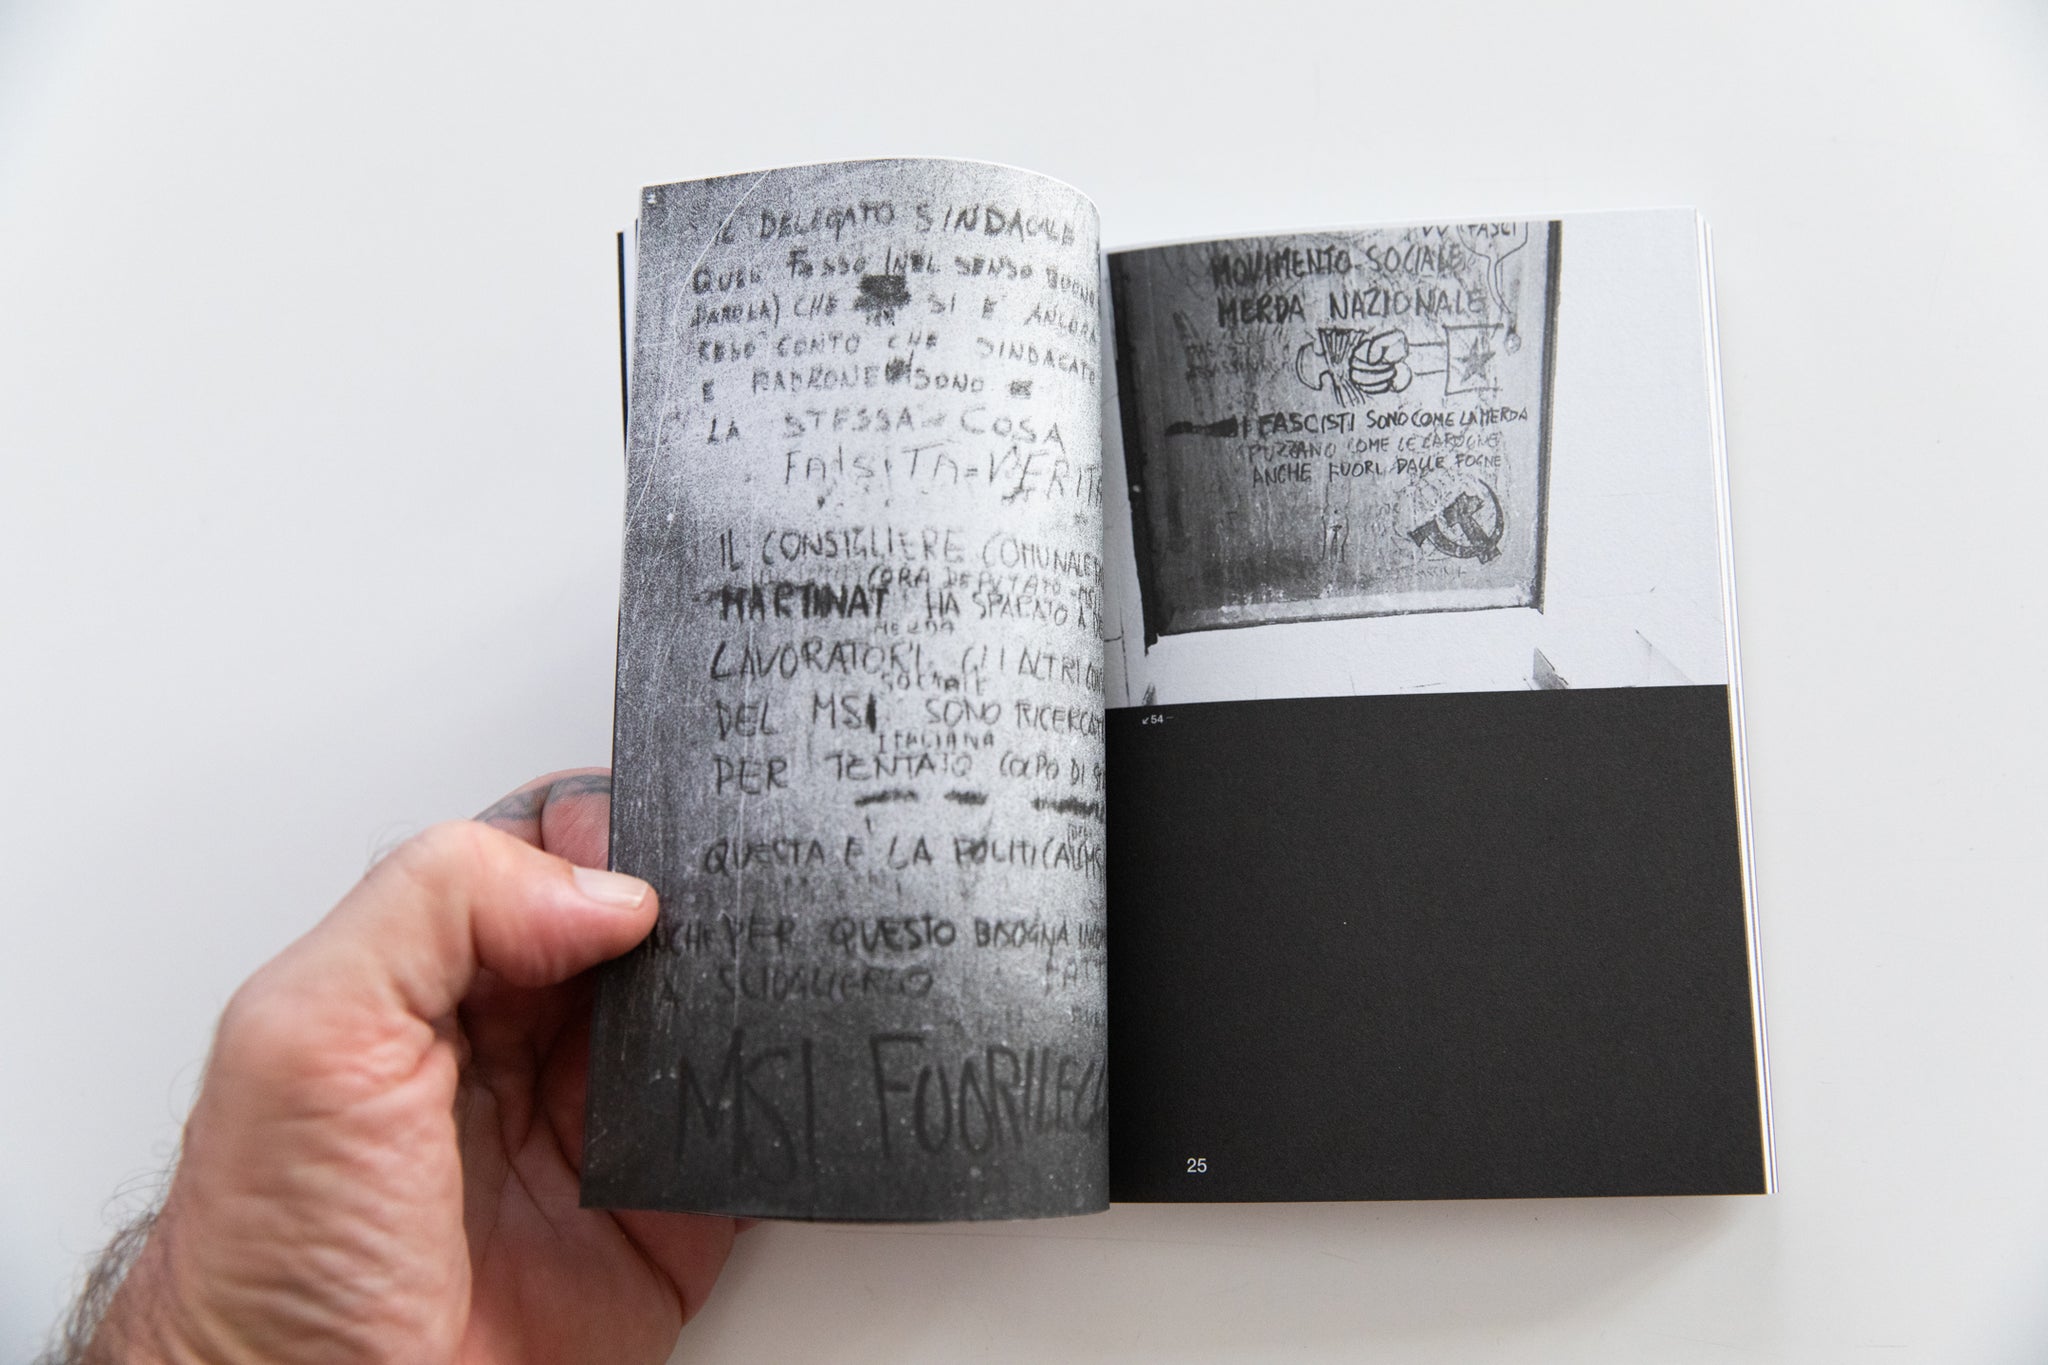 IL DELEGATO SINDACALE
QUEL FESSO (NEL SENSO BUONO
PAROLA) CHE SI E ANCORA
RESO CONTO CHE SINDACATO
E PADRONE SONO
LA STESSA COSA
FALSITA=VERITA
IL CONSIGLIERE COMUNALE
(ORA DEPUTATO MSI
MARTINAT HA SPARATO A
MERDA
LAVORATORI. GLI ALTRI
SOCIALE
DEL MSI SONO RICERCATI
ITALIANA
PER TENTATO COLPO DI
QUESTA E LA POLITICA
ANCHE PER QUESTO BISOGNA
A SCIOGLIERLO
MSI FUORILEGGE
W FASCI
MOVIMENTO SOCIALE
MERDA NAZIONALE
I FASCISTI SONO COME LA MERDA
PUZZANO COME LE CAROGNE
ANCHE FUORI DALLE FOGNE
↙54
25